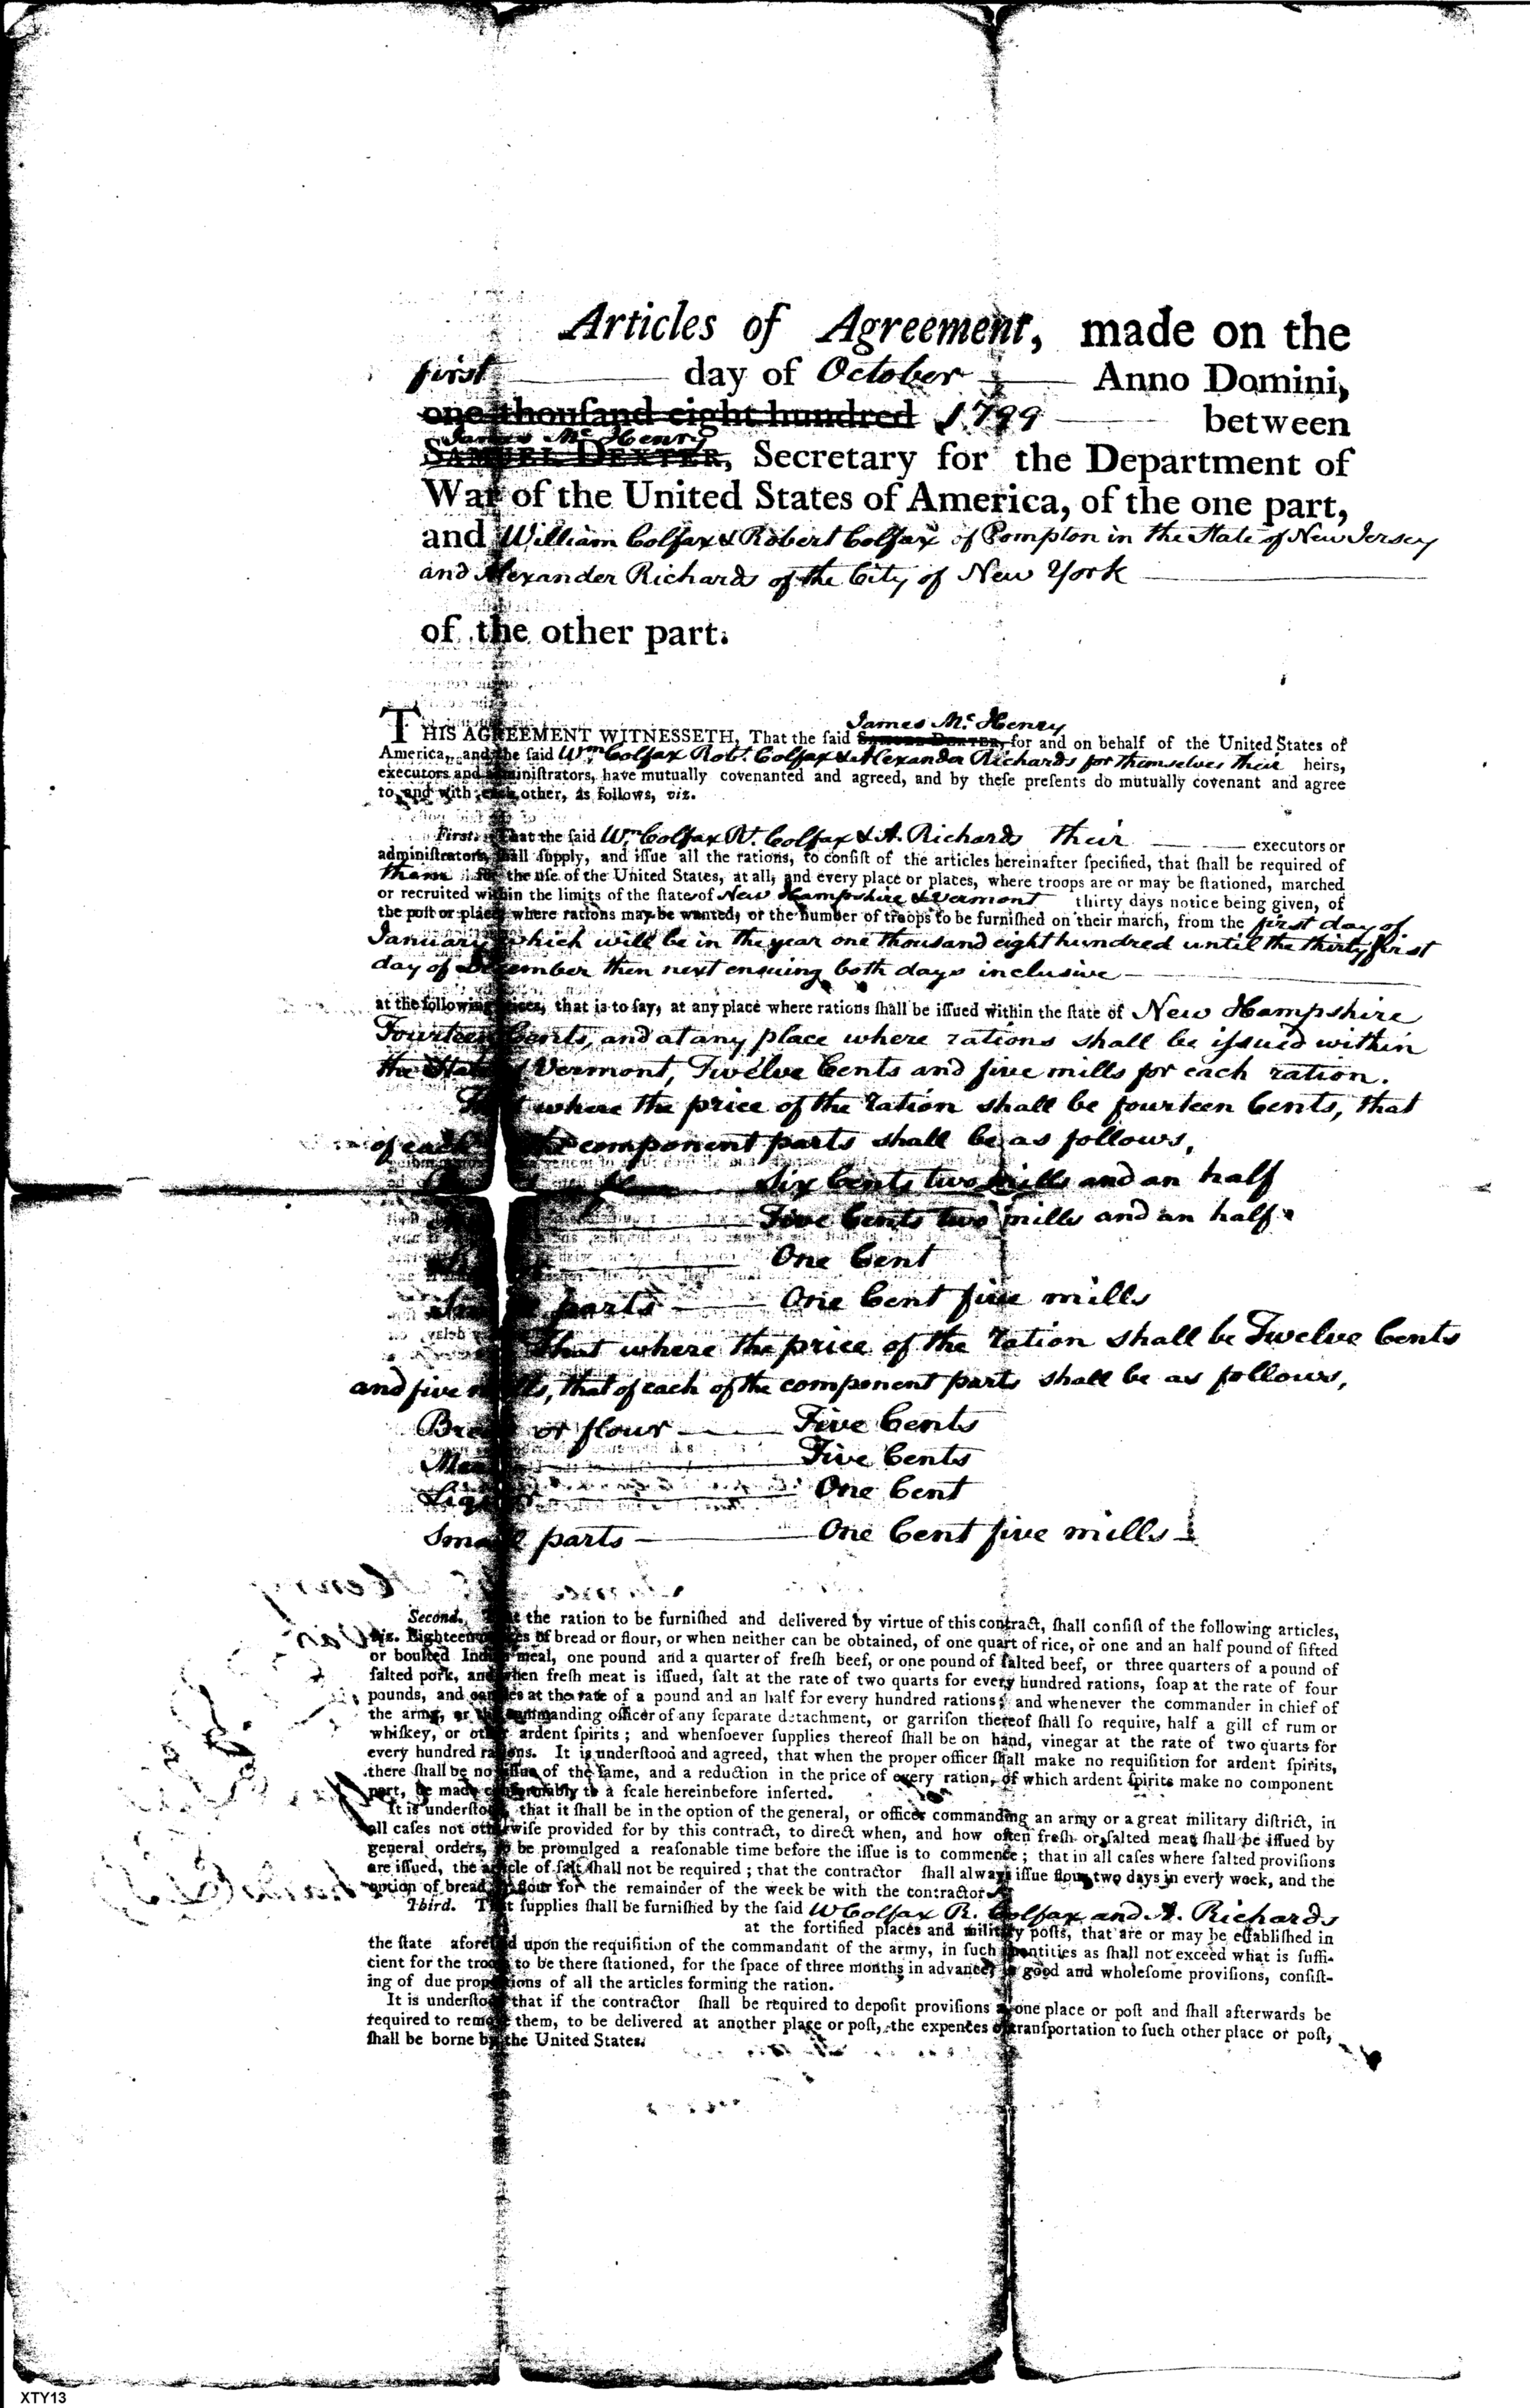 Articles of Agreement, made on the
first day of October Anno Domini,
one thouſand eight hundred 1799 between
James Mc Henry
SAMUEL DEXTER, Secretary for the Department of
War of the United States of America, of the one part,
and William Colfax & Robert Colfax of Pompton in the State of New Jersey
and Alexander Richards of the City of New York
of the other part.
James Mc. Henry
THIS AGREEMENT WITNESSETH, That the ſaid SAMUEL DEXTER, for and on behalf of the United States of
America, and the ſaid Wm. Colfax Robt. Colfax & Alexander Richards for themselves their heirs,
executors and adminiſtrators, have mutually covenanted and agreed, and by theſe preſents do mutually covenant and agree
to, and with each other, as follows, viz.
Firſt. That the ſaid Wm Colfax Rt. Colfax & A. Richards their executors or
adminiſtrators, ſhall ſupply, and iſſue all the rations, to conſiſt of the articles hereinafter ſpecified, that ſhall be required of
them for the uſe of the United States, at all, and every place or places, where troops are or may be ſtationed, marched
or recruited within the limits of the ſtates of New Hampshire & Vermont thirty days notice being given, of
the poſt or place where rations may be wanted, or the number of troops to be furniſhed on their march, from the first day of
January which will be in the year one thousand eight hundred until the thirty first
day of December then next ensuing both days inclusive
at the following prices, that is to ſay, at any place where rations ſhall be iſſued within the ſtate of New Hampshire
Fourteen Cents, and at any place where rations shall be issued within
the State of Vermont, Twelve Cents and five mills for each ration.
That where the price of the ration shall be fourteen Cents, that
of each of the component parts shall be as follows,
Six Cents two mills and an half
Five Cents two mills and an half
One Cent
Small parts One Cent five mills
That where the price of the ration shall be Twelve Cents
and five mills, that of each of the component parts shall be as follows,
Bread or flour Five Cents
Meat Five Cents
Liquor One Cent
Small parts One Cent five mills
Second. That the ration to be furniſhed and delivered by virtue of this contract, ſhall conſiſt of the following articles,
viz. Eighteen ounces of bread or flour, or when neither can be obtained, of one quart of rice, or one and an half pound of ſifted
or boulted Indian meal, one pound and a quarter of freſh beef, or one pound of ſalted beef, or three quarters of a pound of
ſalted pork, and when freſh meat is iſſued, ſalt at the rate of two quarts for every hundred rations, ſoap at the rate of four
pounds, and candles at the rate of a pound and an half for every hundred rations; and whenever the commander in chief of
the army, or the commanding officer of any ſeparate detachment, or garriſon thereof ſhall ſo require, half a gill of rum or
whiſkey, or other ardent ſpirits; and whenſoever ſupplies thereof ſhall be on hand, vinegar at the rate of two quarts for
every hundred rations. It is underſtood and agreed, that when the proper officer ſhall make no requiſition for ardent ſpirits,
there ſhall be no iſſue of the ſame, and a reduction in the price of every ration, of which ardent ſpirits make no component
part, be made conformably to a ſcale hereinbefore inſerted.
It is underſtood, that it ſhall be in the option of the general, or officer commanding an army or a great military diſtrict, in
all caſes not otherwiſe provided for by this contract, to direct when, and how often freſh or ſalted meat ſhall be iſſued by
general orders, to be promulged a reaſonable time before the iſſue is to commence; that in all caſes where ſalted proviſions
are iſſued, the article of ſalt ſhall not be required; that the contractor ſhall always iſſue flour two days in every week, and the
option of bread or flour for the remainder of the week be with the contractor
Third. That ſupplies ſhall be furniſhed by the ſaid W Colfax R. Colfax and A. Richards
at the fortified places and military poſts, that are or may be eſtabliſhed in
the ſtate aforeſaid upon the requiſition of the commandant of the army, in ſuch quantities as ſhall not exceed what is ſuffi-
cient for the troops to be there ſtationed, for the ſpace of three months in advance, in good and wholeſome proviſions, conſiſt-
ing of due proportions of all the articles forming the ration.
It is underſtood that if the contractor ſhall be required to depoſit proviſions at one place or poſt and ſhall afterwards be
required to remove them, to be delivered at another place or poſt, the expences of tranſportation to ſuch other place or poſt,
ſhall be borne by the United States.
XTY13